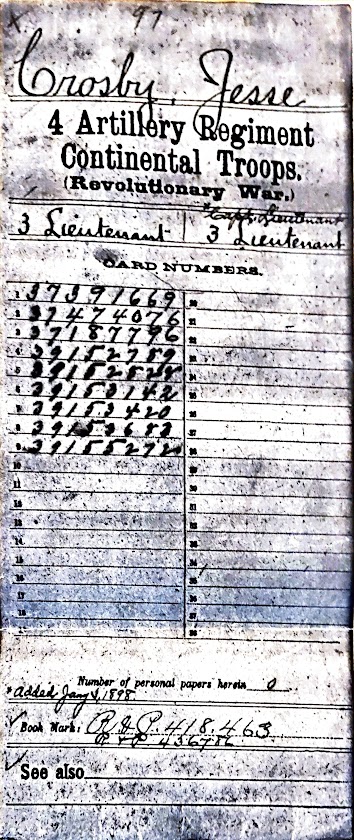 97
Crosby, Jesse
4 Artillery Regiment
Continental Troops.
(Revolutionary War.)
*Capt. Lieutenant
3 Lieutenant | 3 Lieutenant
CARD NUMBERS.
1 37391669 20
2 37474076 21
3 37187796 22
4 39152789 23
5 39152828 24
6 39153142 25
7 39153420 26
8 39153683 27
9 39155272 28
10 29
11 30
12 31
13 32
14 33
15 34
16 35
17 36
18 37
38
Number of personal papers herein 0
*added Jany 4, 1898
Book Mark: R. & P. 418.463
R & P 436786
See also